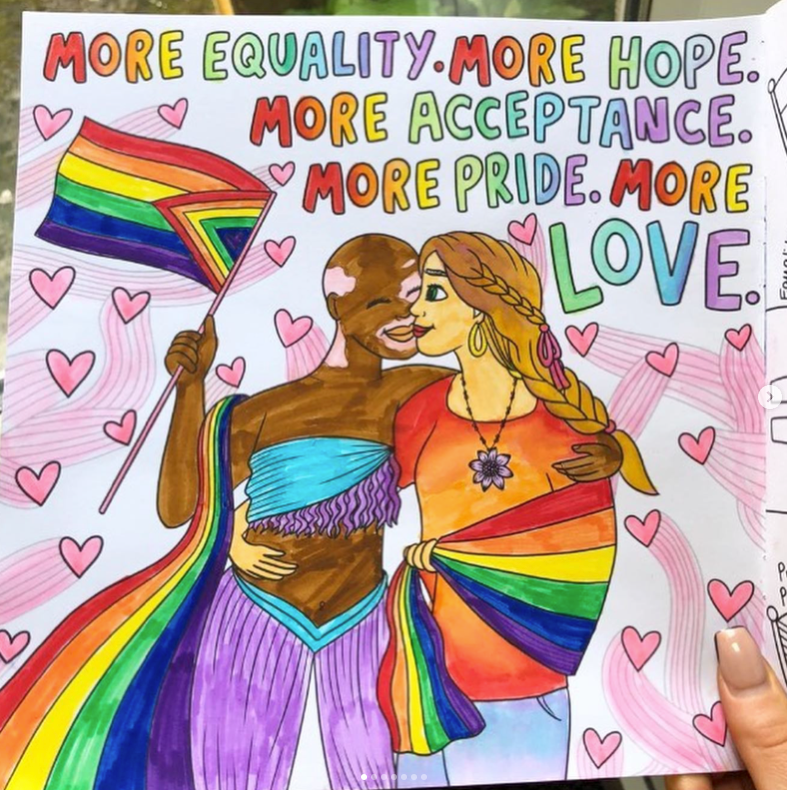 MORE EQUALITY. MORE HOPE.
MORE ACCEPTANCE.
MORE PRIDE. MORE
LOVE.